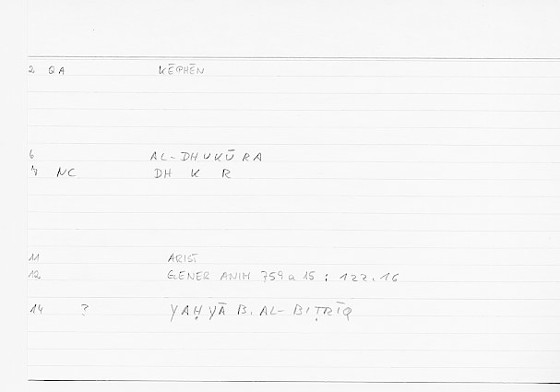 2 QA KĒPHĒN
6 AL-DHUKŪRA
7 NC DH K R
11 ARIST
12 GENER ANIM 759 a 15 : 122.16
14 ? YAḤYĀ B. AL-BIṬRĪQ